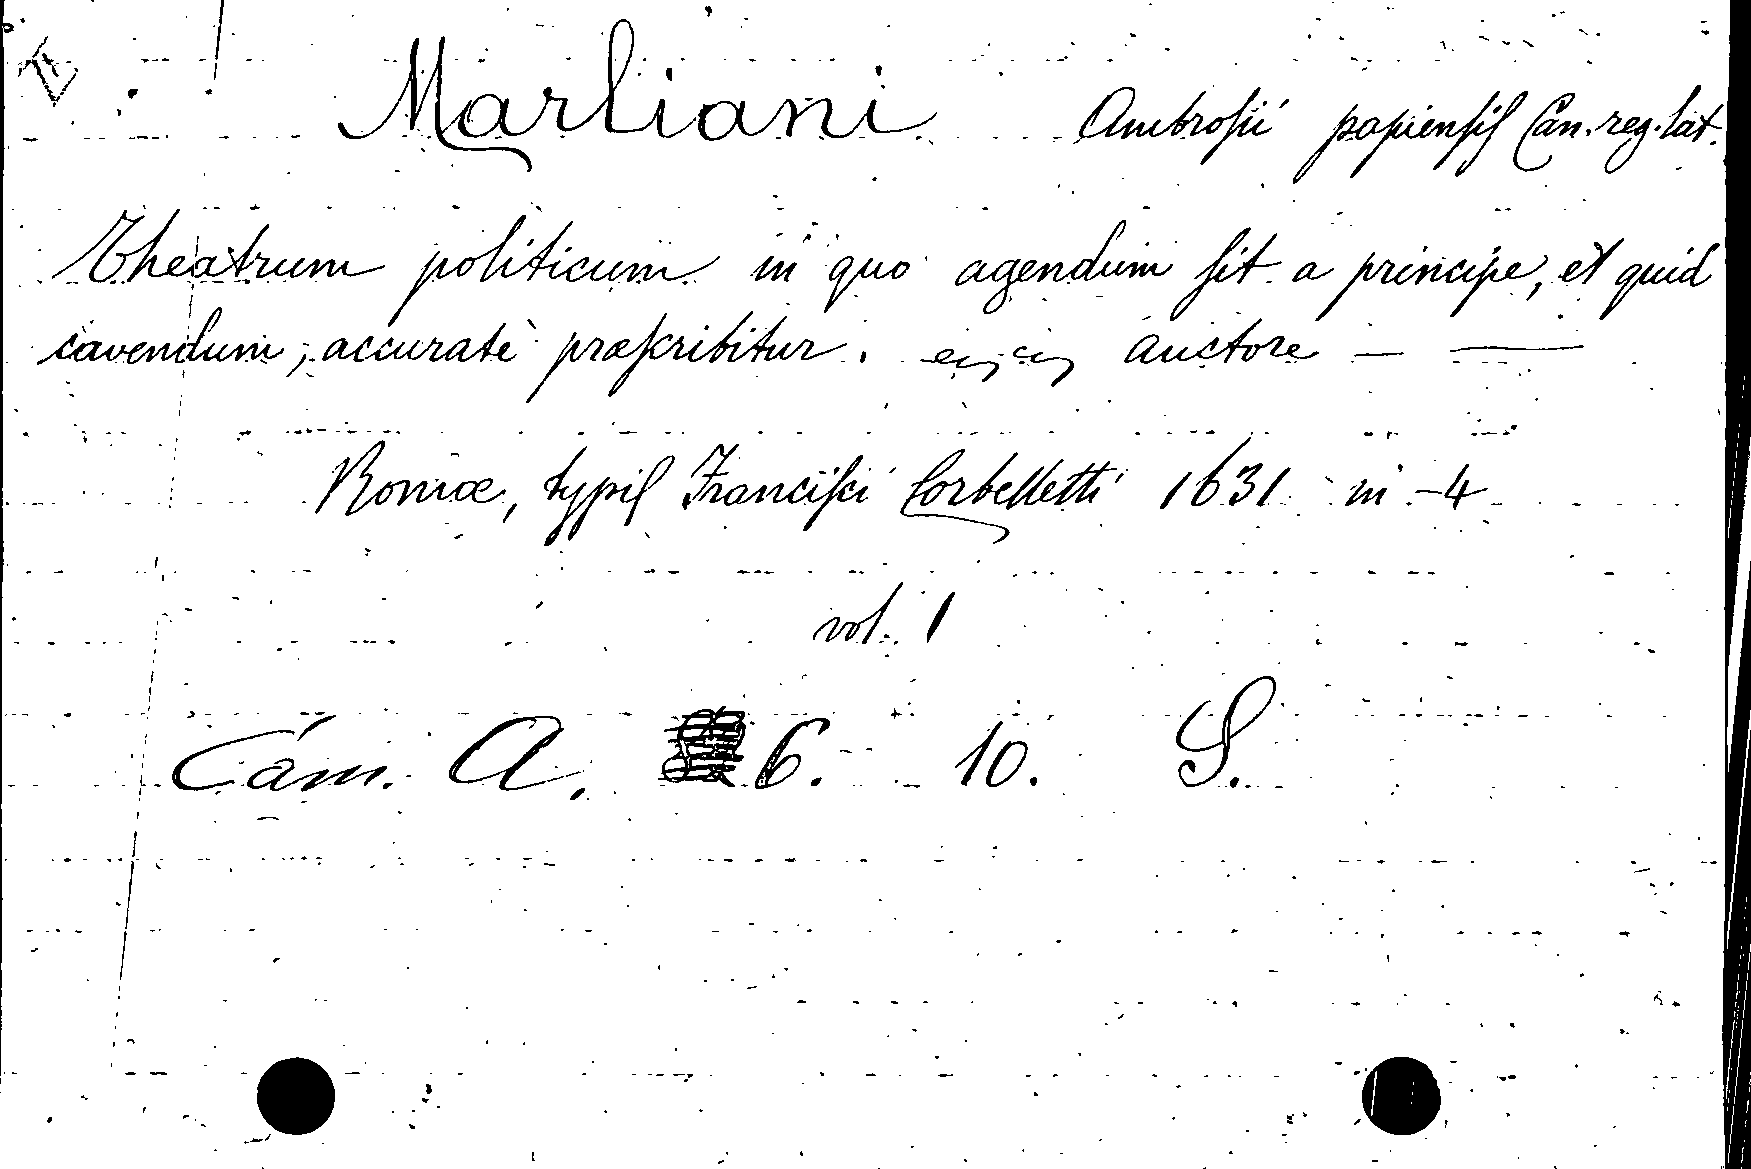 Marliani Ambrosii papiensis Can. reg. lat.
Theatrum politicum in quo agendum sit a principe, et quid
cavendum, accuratè præscribitur. auctore — —
Romæ, typis Francisci Corbelletti 1631 in-4
vol. 1
Cam. A. 6. 10. S.